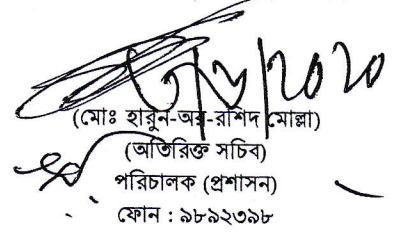 (মোঃ হারুন-অর-রাশিদ মোল্লা)
(অতিরিক্ত সচিব)
পরিচালক (প্রশাসন)
ফোন : ৯৮৯২৩৯৮